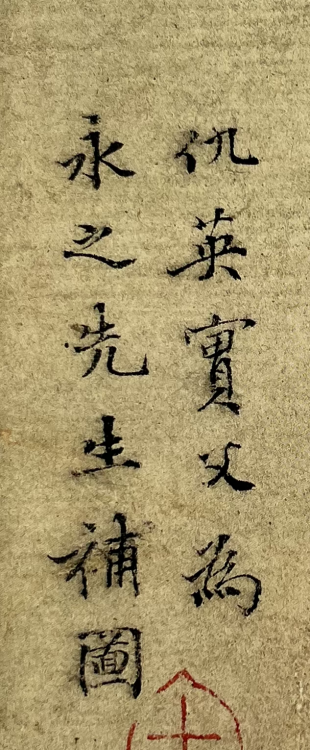 仇英實父為
永之先生補圖